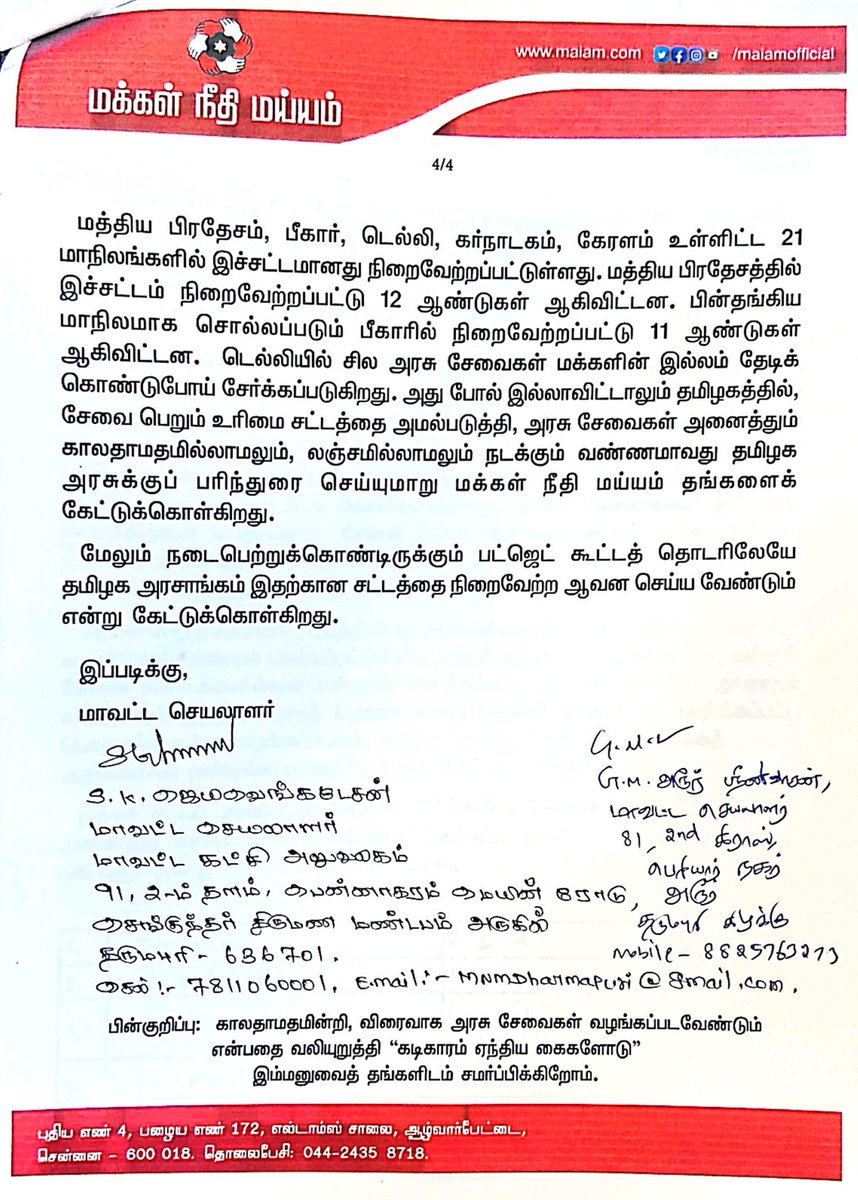 www.maiam.com /maiamofficial
மக்கள் நீதி மய்யம்
4/4
மத்திய பிரதேசம், பீகார், டெல்லி, கர்நாடகம், கேரளம் உள்ளிட்ட 21
மாநிலங்களில் இச்சட்டமானது நிறைவேற்றப்பட்டுள்ளது. மத்திய பிரதேசத்தில்
இச்சட்டம் நிறைவேற்றப்பட்டு 12 ஆண்டுகள் ஆகிவிட்டன. பின்தங்கிய
மாநிலமாக சொல்லப்படும் பீகாரில் நிறைவேற்றப்பட்டு 11 ஆண்டுகள்
ஆகிவிட்டன. டெல்லியில் சில அரசு சேவைகள் மக்களின் இல்லம் தேடிக்
கொண்டுபோய் சேர்க்கப்படுகிறது. அது போல் இல்லாவிட்டாலும் தமிழகத்தில்,
சேவை பெறும் உரிமை சட்டத்தை அமல்படுத்தி, அரசு சேவைகள் அனைத்தும்
காலதாமதமில்லாமலும், லஞ்சமில்லாமலும் நடக்கும் வண்ணமாவது தமிழக
அரசுக்குப் பரிந்துரை செய்யுமாறு மக்கள் நீதி மய்யம் தங்களைக்
கேட்டுக்கொள்கிறது.
மேலும் நடைபெற்றுக்கொண்டிருக்கும் பட்ஜெட் கூட்டத் தொடரிலேயே
தமிழக அரசாங்கம் இதற்கான சட்டத்தை நிறைவேற்ற ஆவன செய்ய வேண்டும்
என்று கேட்டுக்கொள்கிறது.
இப்படிக்கு,
மாவட்ட செயலாளர்
S.K. ஜெயவெங்கடேசன்
மாவட்ட செயலாளர்
மாவட்ட கட்சி அலுவலகம்
91, 2-ம் தளம், பென்னாகரம் மெயின் ரோடு,
செங்குந்தர் திருமண மண்டபம் அருகில்
தருமபுரி - 636701.
செல் :- 7811060001, E.mail :- MNMDharmapuri@gmail.com.
G.M.
மாவட்ட செயலாளர்
81, 2nd கிராஸ்,
பெரியார் நகர்
அரூர்
தருமபுரி கிழக்கு
mobile - 8825763273
பின்குறிப்பு: காலதாமதமின்றி, விரைவாக அரசு சேவைகள் வழங்கப்படவேண்டும்
என்பதை வலியுறுத்தி “கடிகாரம் ஏந்திய கைகளோடு”
இம்மனுவைத் தங்களிடம் சமர்ப்பிக்கிறோம்.
புதிய எண் 4, பழைய எண் 172, எல்டாம்ஸ் சாலை, ஆழ்வார்பேட்டை,
சென்னை - 600 018. தொலைபேசி: 044-2435 8718.